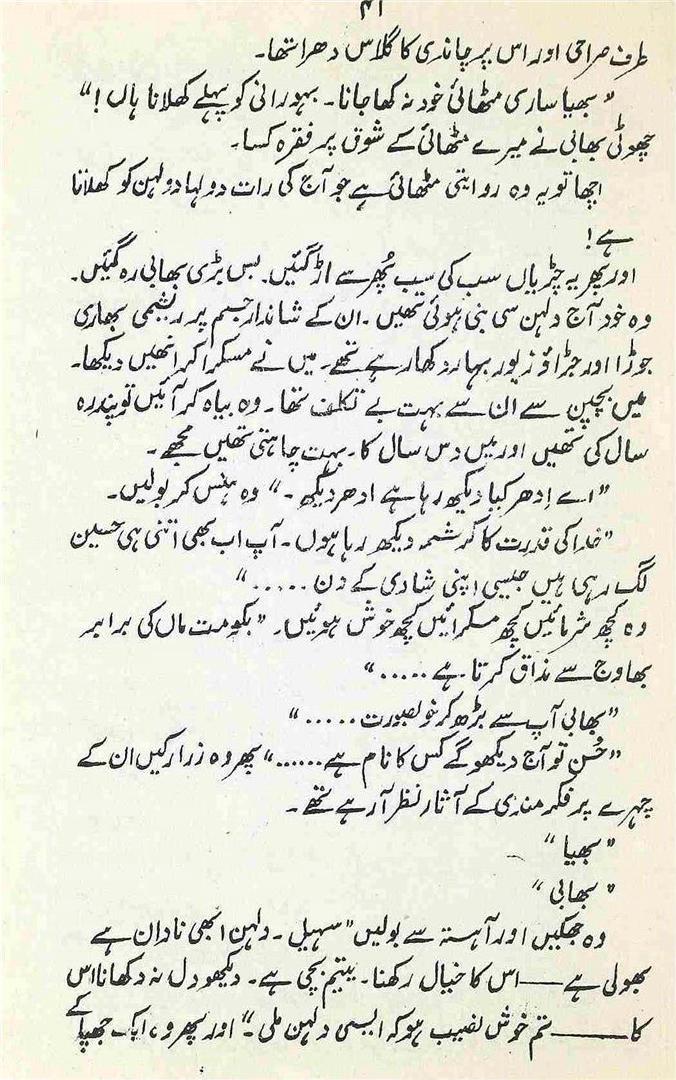 ۴۱
طرف صراحی اور اس پر چاندی کا گلاس دھرا تھا۔
”بھیا ساری مٹھائی خود نہ کھا جانا۔ بہورانی کو پہلے کھلانا ہاں!“
چھوٹی بھابی نے میرے مٹھائی کے شوق پر فقرہ کسا۔
اچھا تو یہ وہ روایتی مٹھائی ہے جو آج کی رات دولہا دولہن کو کھلاتا
ہے!
اور پھر یہ چڑیاں سب کی سب پُھر سے اڑ گئیں۔ بس بڑی بھابی رہ گئیں۔
وہ خود آج دلہن سی بنی ہوئی تھیں۔ ان کے شاندار جسم پر ریشمی بھاری
جوڑا اور جڑاؤ زیور بہار دکھا رہے تھے۔ میں نے مسکرا کر انھیں دیکھا۔
میں بچپن سے ان سے بہت بے تکلف تھا۔ وہ بیاہ کر آئیں تو پندرہ
سال کی تھیں اور میں دس سال کا۔ بہت چاہتی تھیں مجھے۔
”اے اِدھر کیا دیکھ رہا ہے ادھر دیکھ۔“ وہ ہنس کر بولیں۔
”خدا کی قدرت کا کرشمہ دیکھ رہا ہوں۔ آپ اب بھی اتنی ہی حسین
لگ رہی ہیں جیسی اپنی شادی کے دن .....“
وہ کچھ شرمائیں کچھ مسکرائیں کچھ خوش ہوئیں۔ ”بکو مت ماں کی برابر
بھاوج سے مذاق کرتا ہے .....“
”بھابی آپ سے بڑھ کر خوبصورت .....“
”حُسن تو آج دیکھو گے کس کا نام ہے ......“ پھر وہ زرا رکیں ان کے
چہرے پر فکر مندی کے آثار نظر آ رہے تھے۔
”بھیا“
”بھابی“
وہ جھکیں اور آہستہ سے بولیں ”سہیل۔ دلہن ابھی نادان ہے
بھولی ہے — اس کا خیال رکھنا۔ یتیم بچی ہے۔ دیکھو دل نہ دکھانا اس
کا — تم خوش نصیب ہو کہ ایسی دلہن ملی۔“ اور پھر وہ، ایک جھپاکے